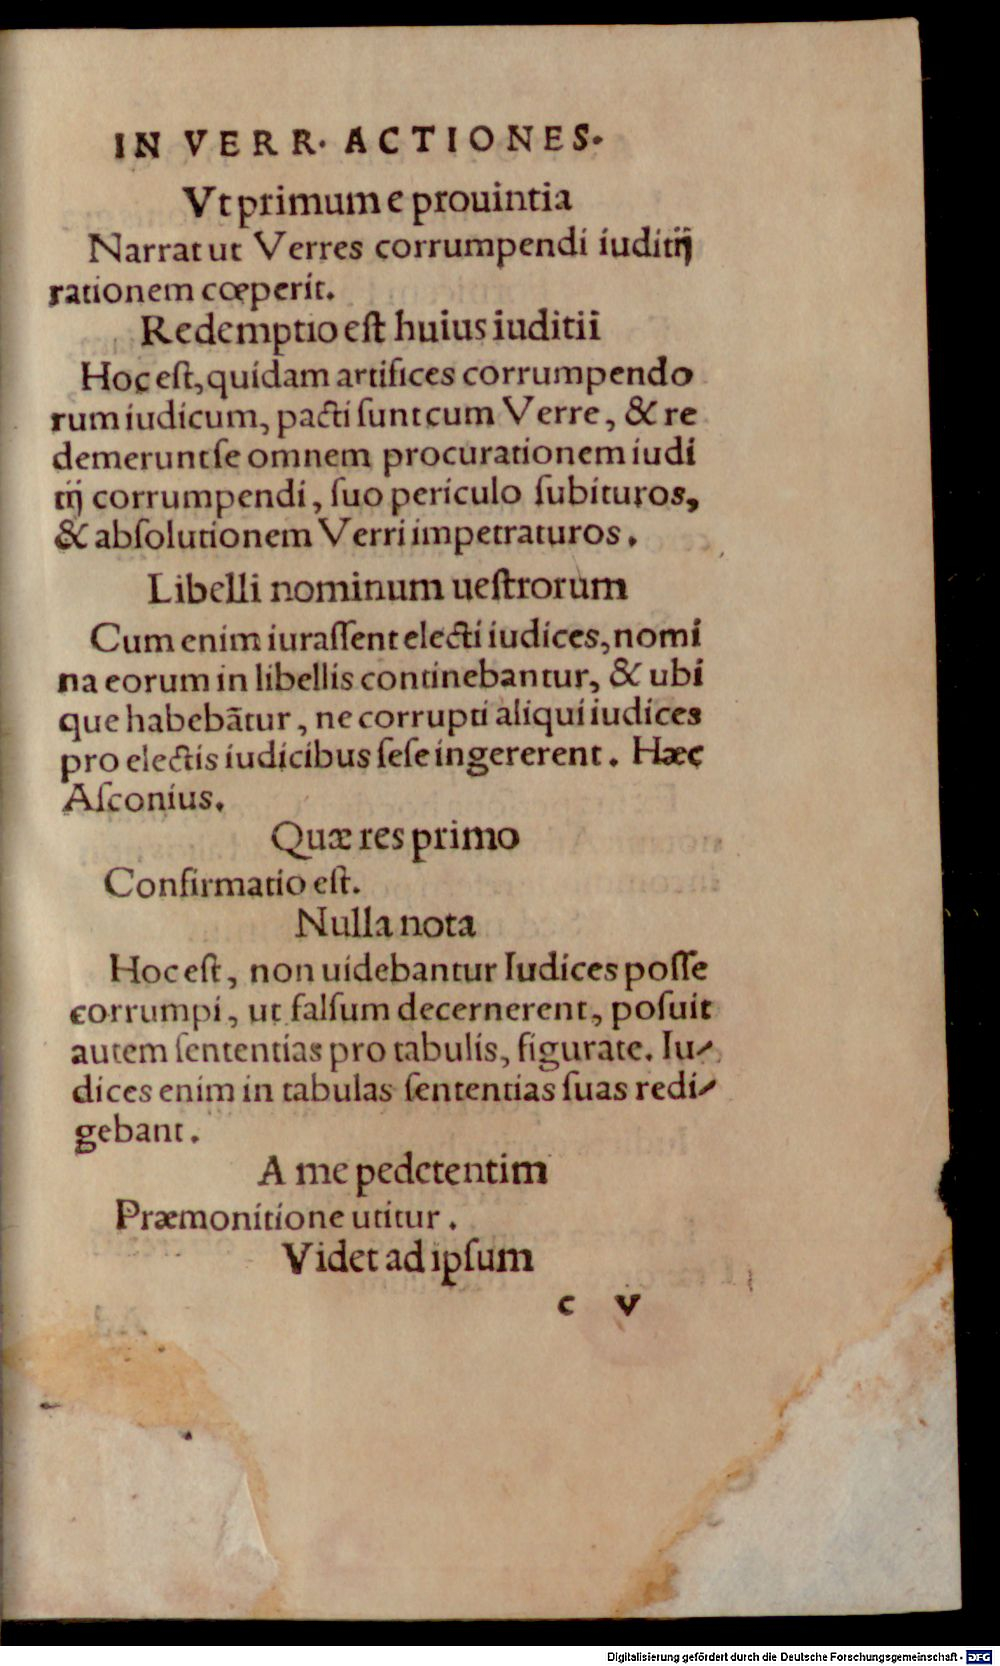 IN VERR. ACTIONES.
Vt primum e prouintia
Narrat ut Verres corrumpendi iuditij
rationem cœperit.
Redemptio eſt huius iuditii
Hoc eſt, quidam artifices corrumpendo
rum iudicum, pacti ſunt cum Verre, & re
demerunt ſe omnem procurationem iudi
tij corrumpendi, ſuo periculo ſubituros,
& abſolutionem Verri impetraturos.
Libelli nominum ueſtrorum
Cum enim iuraſſent electi iudices, nomi
na eorum in libellis continebantur, & ubi
que habebātur, ne corrupti aliqui iudices
pro electis iudicibus ſeſe ingererent. Hæc
Aſconius.
Quæ res primo
Confirmatio eſt.
Nulla nota
Hoc eſt, non uidebantur Iudices poſſe
corrumpi, ut falſum decernerent, poſuit
autem ſententias pro tabulis, figurate. Iu-
dices enim in tabulas ſententias ſuas redi-
gebant.
A me pedetentim
Præmonitione utitur.
Videt ad ipſum
c v
Digitalisierung gefördert durch die Deutsche Forschungsgemeinschaft - DFG